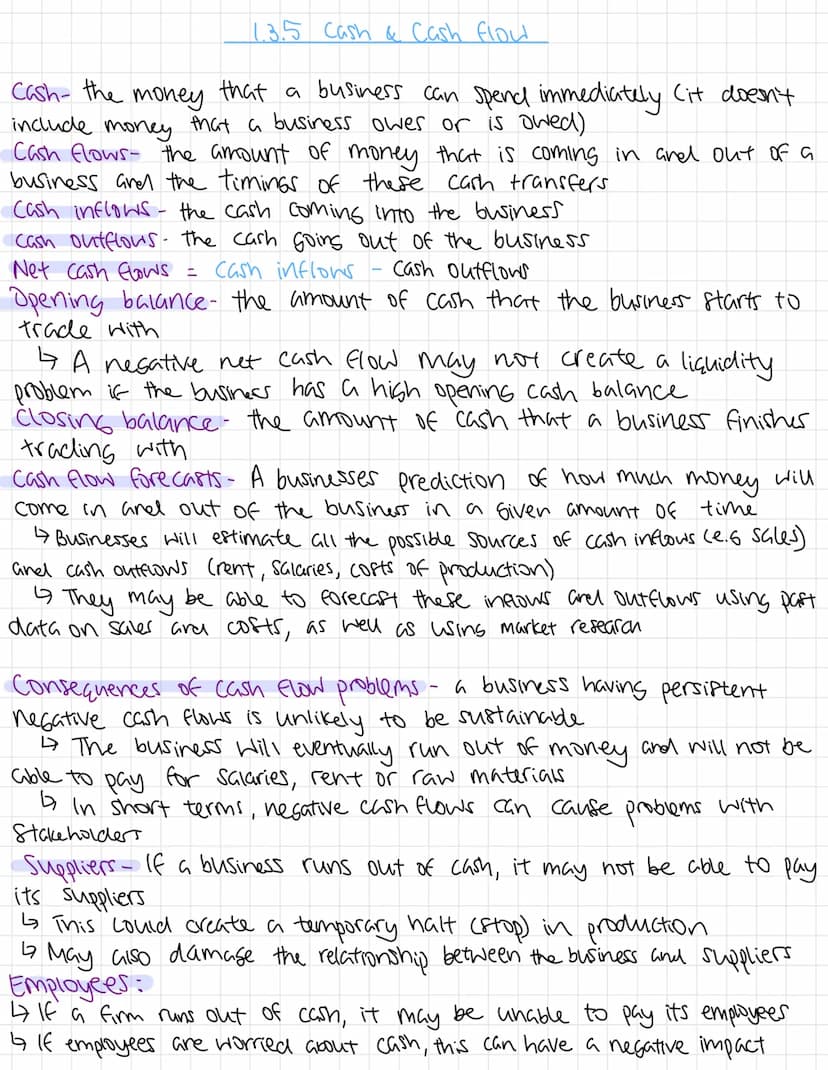 1.3.5 Cash & Cash flow
Cash- the money that a business can spend immediately (it doesn't
include money that a business owes or is owed)
Cash flows- the amount of money that is coming in and out of a
business and the timings of these cash transfers
Cash inflows- the cash coming into the business
Cash outflows- the cash going out of the business
Net cash flows = cash inflows - cash outflows
Opening balance- the amount of cash that the business starts to
trade with
↳ A negative net cash flow may not create a liquidity
problem if the business has a high opening cash balance
Closing balance- the amount of cash that a business finishes
trading with
Cash flow forecasts- A businesses prediction of how much money will
come in and out of the business in a given amount of time
↳ Businesses will estimate all the possible sources of cash inflows (e.g sales)
and cash outflows (rent, salaries, costs of production)
↳ They may be able to forecast these inflows and outflows using past
data on sales and costs, as well as using market research
Consequences of cash flow problems- a business having persistent
negative cash flows is unlikely to be sustainable
↳ The business will eventually run out of money and will not be
able to pay for salaries, rent or raw materials
↳ In short terms, negative cash flows can cause problems with
stakeholders
Suppliers- If a business runs out of cash, it may not be able to pay
its suppliers
↳ This could create a temporary halt (stop) in production
↳ May also damage the relationship between the business and suppliers
Employees:
↳ If a firm runs out of cash, it may be unable to pay its employees
↳ If employees are worried about cash, this can have a negative impact